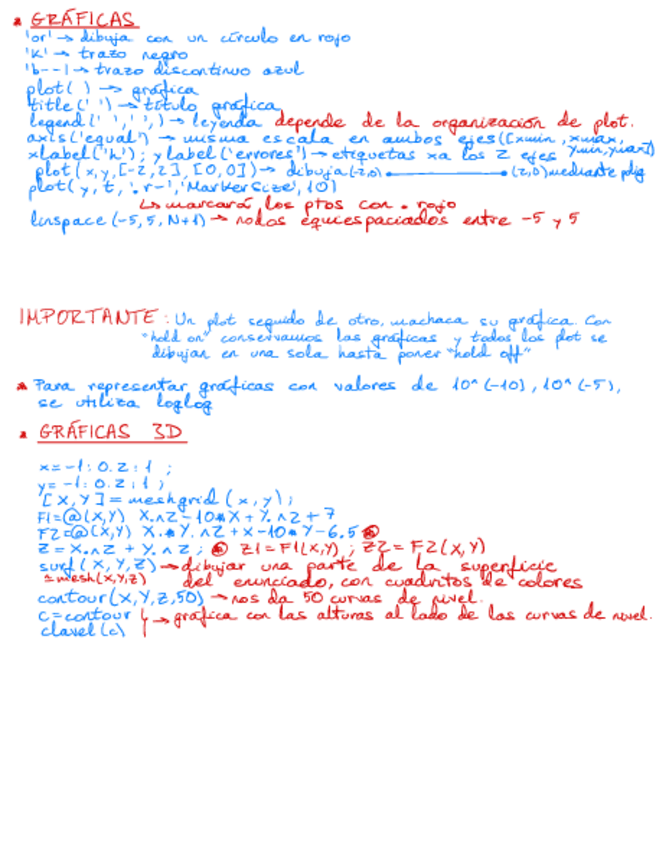 GRÁFICAS
'or' → dibuja con un círculo en rojo
'K' → trazo negro
'b--' → trazo discontinuo azul
plot( ) → gráfica
title(' ') → título gráfica
legend(' ',' ',) → leyenda depende de la organización de plot.
axis('equal') → misma escala en ambos ejes([xmin, xmax,
ymin, ymax])
xlabel('h'); ylabel('errores') → etiquetas xa los 2 ejes
plot(x,y,[-2,2],[0,0]) → dibuja (-2,0) (2,0) mediante
plot(y,t,'.r-','MarkerSize',10)
↳ marcará los ptos con • rojo
linspace(-5,5,N+1) → nodos equiespaciados entre -5 y 5
IMPORTANTE: Un plot seguido de otro, machaca su gráfica. Con
"hold on" conservamos las gráficas y todos los plot se
dibujan en una sola hasta poner "hold off"
Para representar gráficas con valores de 10^(-10), 10^(-5),
se utiliza loglog
GRÁFICAS 3D
x=-1:0.2:1 ;
y=-1:0.2:1 ;
[X,Y]=meshgrid(x,y);
F1=@(X,Y) X.^2-10*X+Y.^2+7
F2=@(X,Y) X.*Y.^2+X-10*Y-6.5
Z=X.^2 + Y.^2 ; Z1=F1(X,Y) ; Z2=F2(X,Y)
surf(X,Y,Z) → dibujar una parte de la superficie
≃mesh(X,Y,Z) del enunciado, con cuadritos de colores
contour(X,Y,Z,50) → nos da 50 curvas de nivel.
C=contour → gráfica con las alturas al lado de las curvas de nivel.
clavel(c)